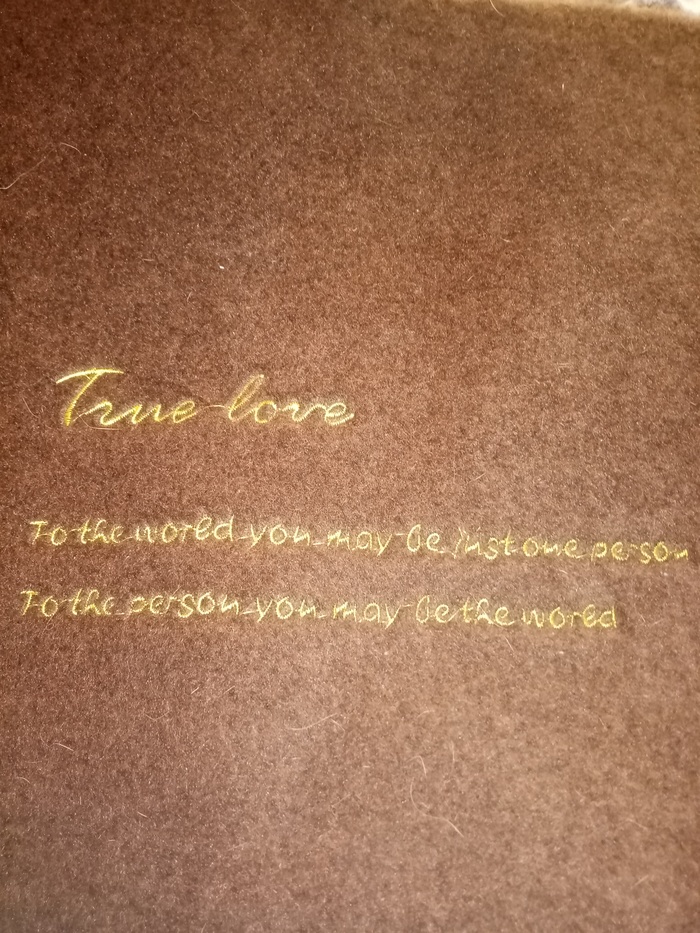 True love
To the world you may be just one person
To the person you may be the world